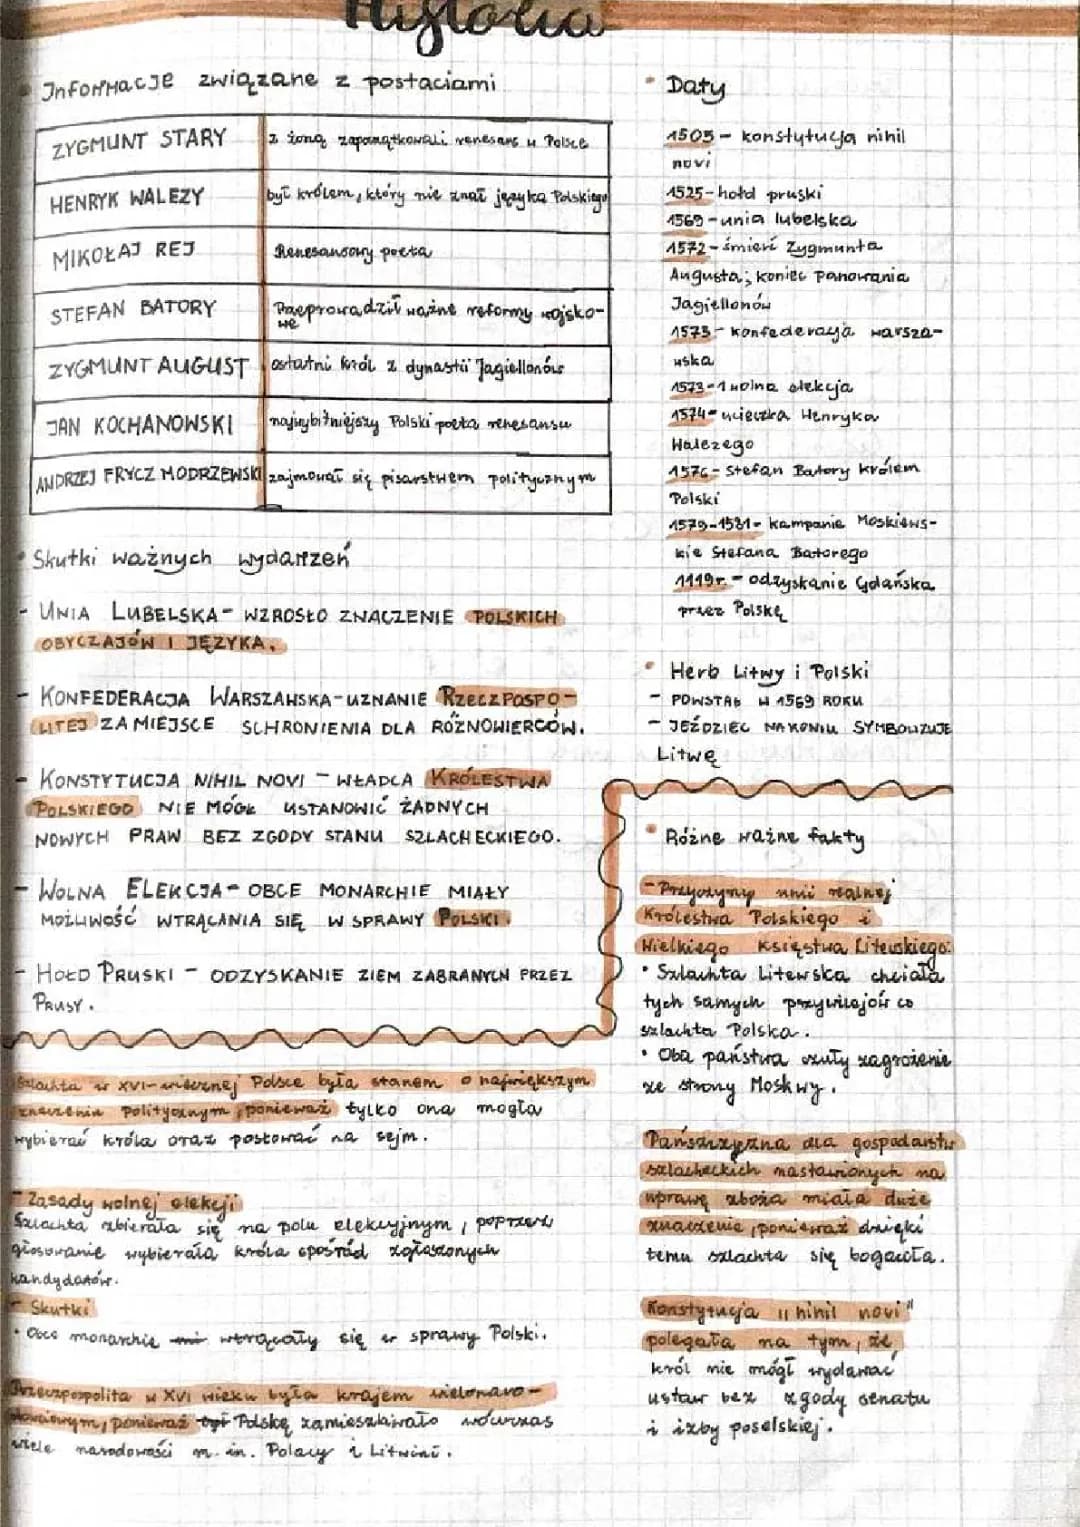 Historia
• Informacje związane z postaciami
ZYGMUNT STARY
z żoną zapoczątkowali renesans w Polsce
HENRYK WALEZY
był królem, który nie znał języka Polskiego
MIKOŁAJ REJ
Renesansowy poeta
STEFAN BATORY
Przeprowadził ważne reformy wojsko-
we
ZYGMUNT AUGUST
ostatni król z dynastii Jagiellonów
JAN KOCHANOWSKI
najwybitniejszy Polski poeta renesansu
ANDRZEJ FRYCZ MODRZEWSKI
zajmował się pisarstwem politycznym
• Skutki ważnych wydarzeń
- UNIA LUBELSKA - WZROSŁO ZNACZENIE POLSKICH
OBYCZAJÓW I JĘZYKA.
- KONFEDERACJA WARSZAWSKA - UZNANIE RZECZPOSPO-
LITEJ ZA MIEJSCE SCHRONIENIA DLA RÓŻNOWIERCÓW.
- KONSTYTUCJA NIHIL NOVI - WŁADCA KRÓLESTWA
POLSKIEGO NIE MÓGŁ USTANOWIĆ ŻADNYCH
NOWYCH PRAW BEZ ZGODY STANU SZLACHECKIEGO.
- WOLNA ELEKCJA - OBCE MONARCHIE MIAŁY
MOŻLIWOŚĆ WTRĄCANIA SIĘ W SPRAWY POLSKI.
- HOŁD PRUSKI - ODZYSKANIE ZIEM ZABRANYCH PRZEZ
PRUSY.
Szlachta w XVI-wiecznej Polsce była stanem o największym
znaczeniu politycznym, ponieważ tylko ona mogła
wybierać króla oraz posłować na sejm.
- Zasady wolnej elekcji
Szlachta zbierała się na polu elekcyjnym, poprzez
głosowanie wybierała króla spośród zgłoszonych
kandydatów.
- Skutki
• Obce monarchie wtrącały się w sprawy Polski.
Rzeczpospolita w XVI wieku była krajem wielonaro-
dowościowym, ponieważ Polskę zamieszkiwało wówczas
wiele narodowości m.in. Polacy i Litwini.
• Daty
1505 - konstytucja nihil
novi
1525 - hołd pruski
1569 - unia lubelska
1572 - śmierć Zygmunta
Augusta; koniec panowania
Jagiellonów
1573 - konfederacja warsza-
wska
1573 - 1 wolna elekcja
1574 - ucieczka Henryka
Walezego
1576 - Stefan Batory królem
Polski
1579-1581 - kampanie Moskiews-
kie Stefana Batorego
1119r. - odzyskanie Gdańska
przez Polskę
• Herb Litwy i Polski
- POWSTAŁ W 1569 ROKU
- JEŹDZIEC NA KONIU SYMBOLIZUJE
Litwę
• Różne ważne fakty
- Przyczyny unii realnej
Królestwa Polskiego i
Wielkiego Księstwa Litewskiego:
• Szlachta Litewska chciała
tych samych przywilejów co
szlachta Polska.
• Oba państwa czuły zagrożenie
ze strony Moskwy.
Pańszczyzna dla gospodarstw
szlacheckich nastawionych na
uprawę zboża miała duże
znaczenie, ponieważ dzięki
temu szlachta się bogaciła.
Konstytucja "nihil novi"
polegała na tym, że,
król nie mógł wydawać
ustaw bez zgody senatu
i izby poselskiej.